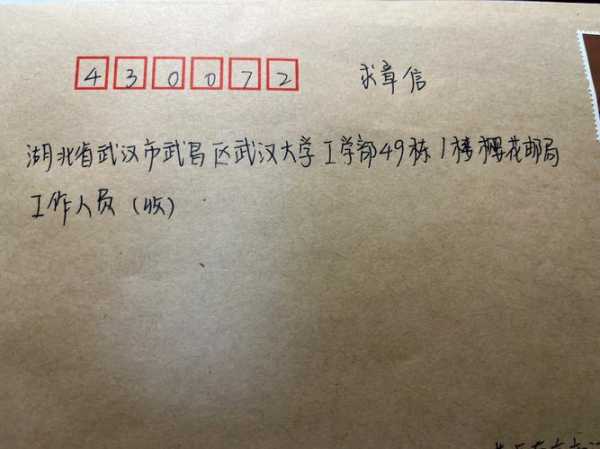 430072 求章信
湖北省武汉市武昌区武汉大学工学部49栋1楼樱花邮局
工作人员(收)